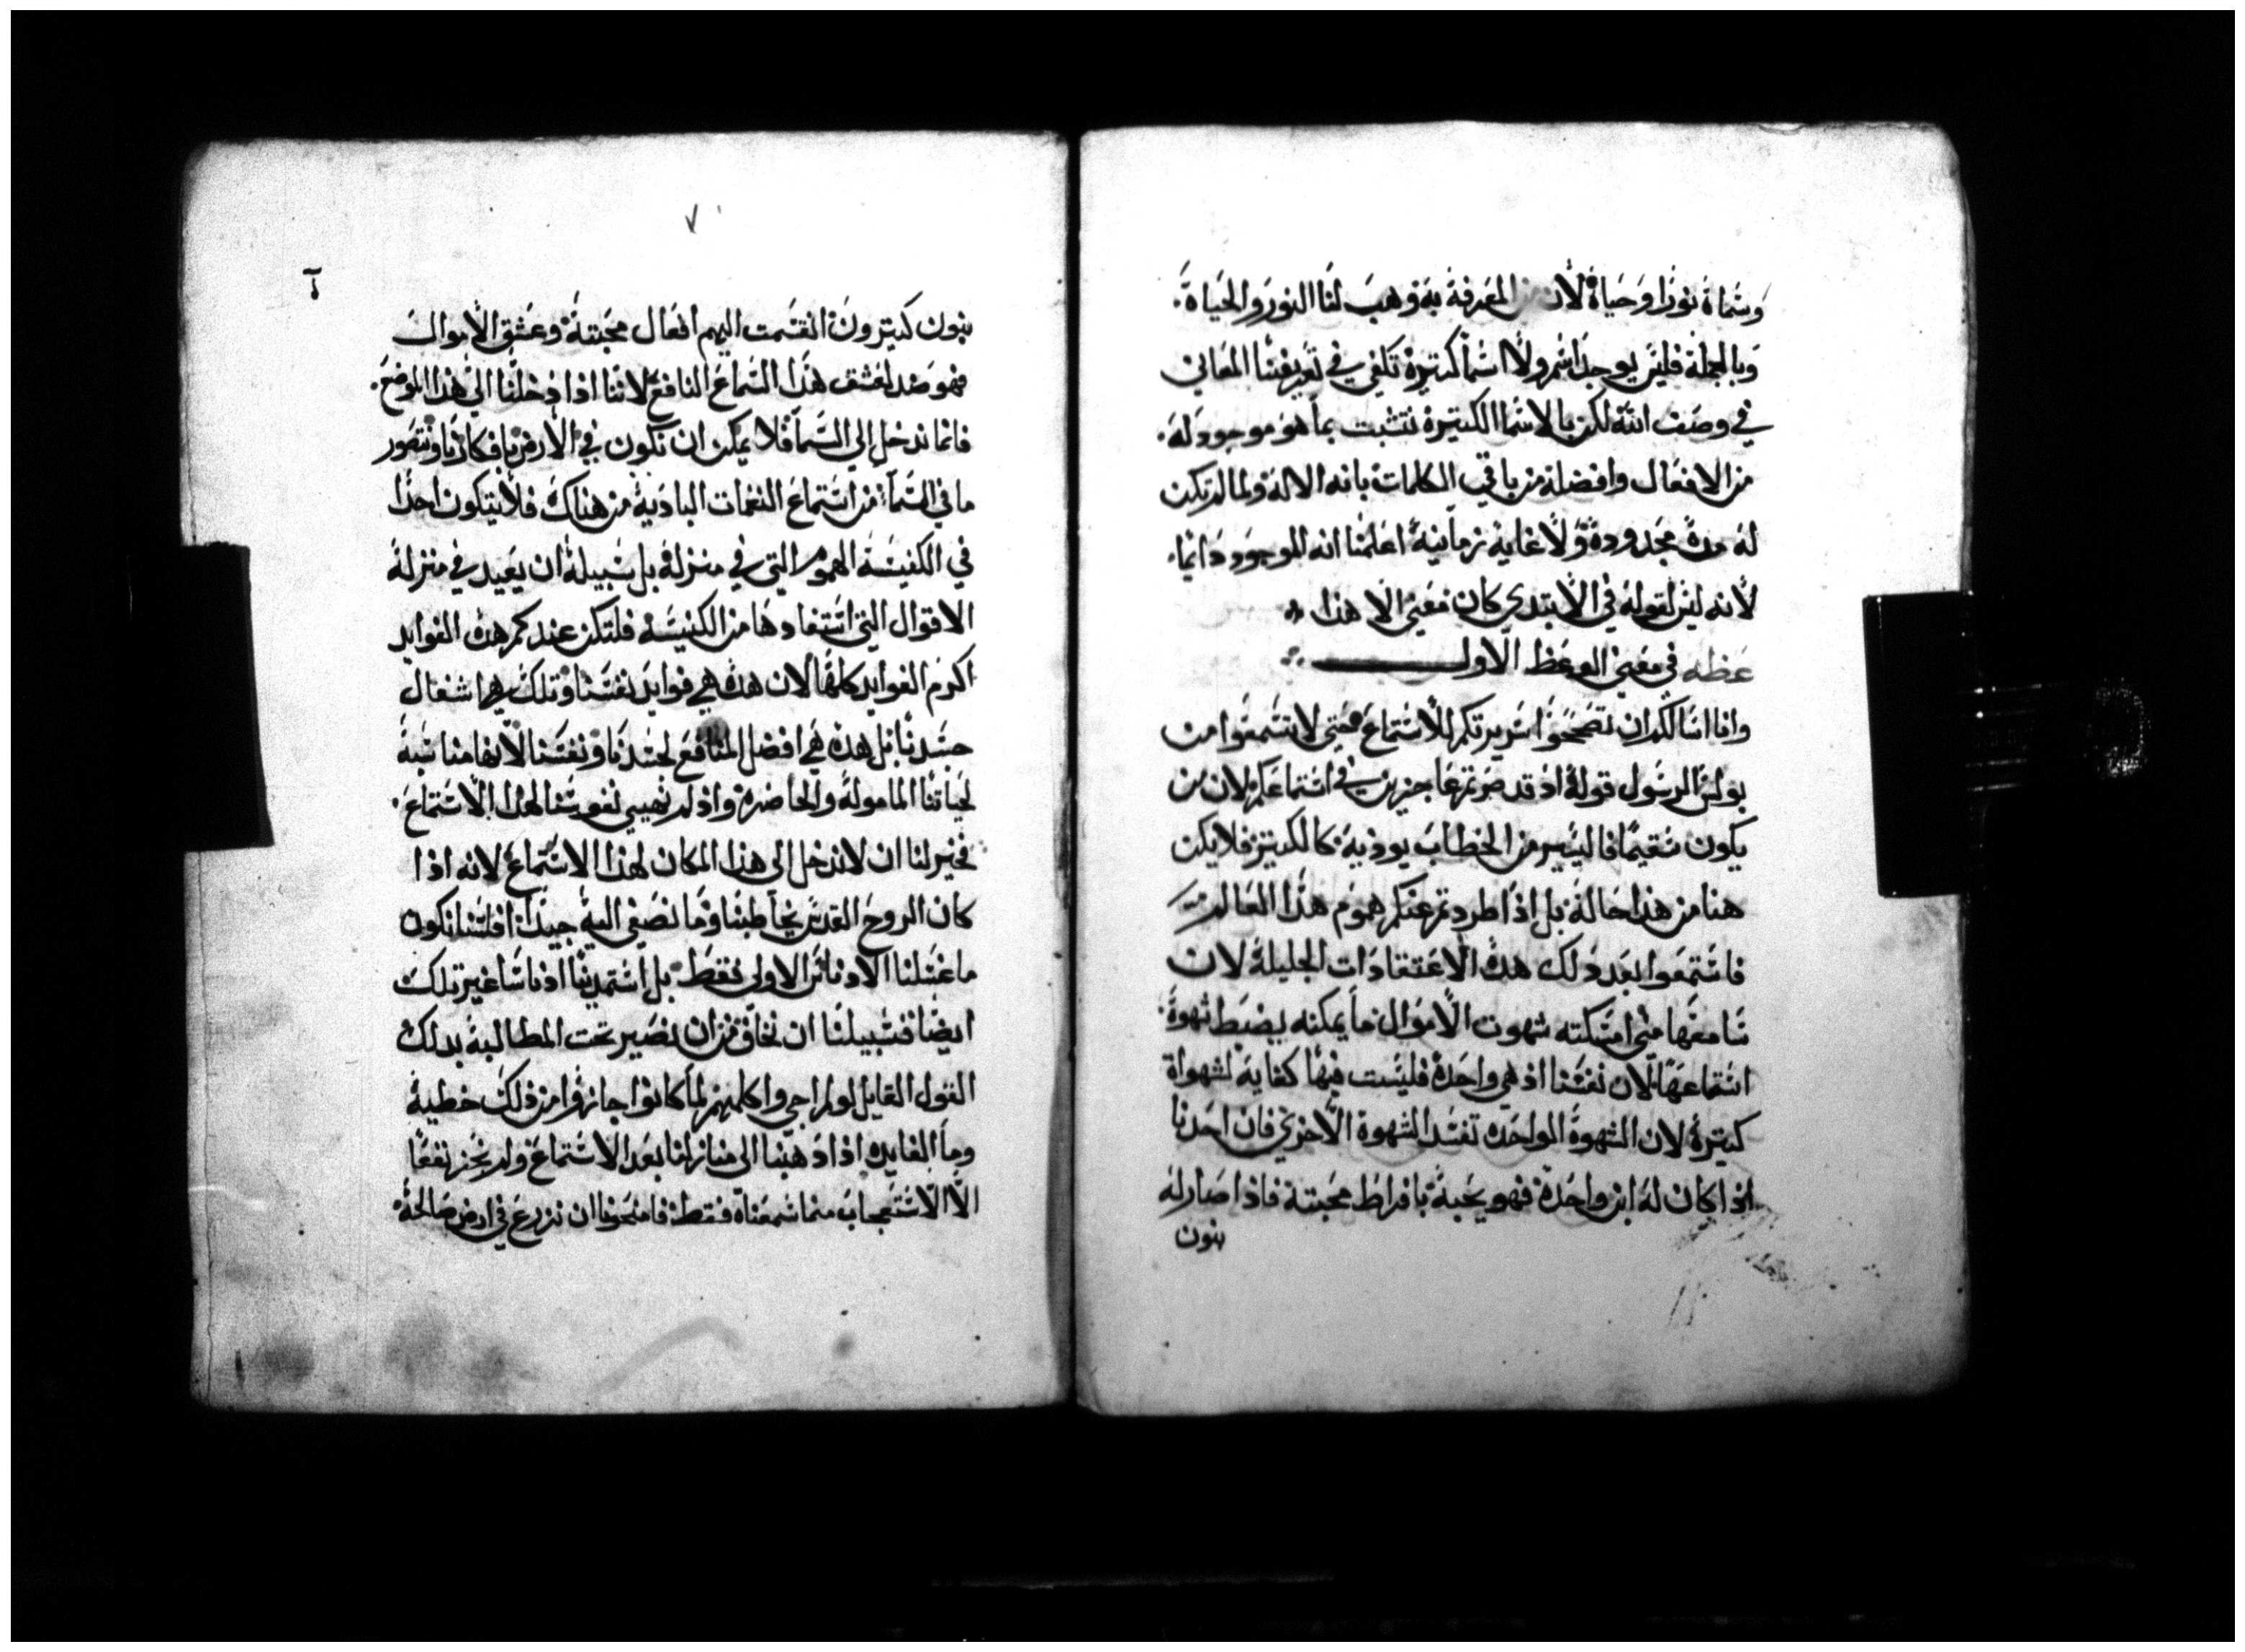 وسماة نورا وحياة لان المعرفة به وهب لنا النور والحياة.
وبالجملة فليس يوجد اسم ولا اسما كتيرة تكفي في تعريفنا المعاني
في وصف الله لكن بالاسما الكتيرة نتثبت بما هو موجود له.
من الافعال وافضله من باقي الكلمات بانه الاله ولما لم تكن
له مدة محدودة ولا غاية زمانية اعلمنا انه الموجود دايما.
لانه ليس لقوله في الابتدي كان معني الا هذا
عظه في معني الوعظ الاول
وانا اسالكم ان تصححوا سريرتكم للاستماع حتي لا تسمعوا من
بولس الرسول قوله اذ قد صرتم عاجزين في استماعكم لان من
يكون سقيما فاليسير من الخطاب يوذيه كالكتير فلا يكن
هنا من هذا حاله بل اذا طردتم عنكم هموم هذا العالم
فاستمعوا بعد ذلك هذه الاعتقادات الجليلة لان
سامعها متي امسكته شهوت الاموال ما يمكنه يضبط شهوة
استماعها لان نفسنا اذ هي واحدة فليست فيها كفاية لشهواة
كتيرة لان الشهوة الواحده تفسد الشهوة الاخري فان احدنا
اذا كان له ابن واحدة فهو يحبه بافراط محبته فاذا صار له
بنون
٧
٦
بنون كتيرون انقسمت اليهم افعال محبته وعشق الاموال
فهو ضد لعشق هذا السماع النافع لاننا اذا دخلنا الي هذا الموضع.
فانما ندخل الي السما فلا يمكن ان نكون في الارض بافكارنا ونتصور
ما في السما من استماع النغمات البادية من هناك فلا يتكون احدا
في الكنيسة الهموم التي في منزله بل سبيله ان يعيد في منزله
الاقوال التي استفادها من الكنيسة فلتكن عندكم هذه الفوايد
اكرم الفوايد كلها لان هذه هي فوايد نفسنا وتلك هي اشغال
جسدنا بل هذه هي افضل المنافع لجسدنا ونفسنا لانها مناسبة
لحياتنا المامولة والحاضرة واذ لم نهيي نفوسنا لهذا الاستماع.
فخير لنا ان لا ندخل الي هذا المكان لهذا الاستماع لانه اذا
كان الروح القدس يخاطبنا وما نصغي اليه جيدا فلسنا نكون
ما غسلنا الادناس الاولي فقط بل استمدينا ادناسا غير تلك
ايضا فسبيلنا ان نخاف من ان نصير تحت المطالبة بدلك
القول القايل لو لم اجي واكلمهم لما كانوا حازوا من ذلك خطية
وما الفايده اذا ذهبنا الي منازلنا بعد الاستماع ولم نحز نفعا
الا الاستعجاب مما سمعناه فقط فامنحونا ان نزرع في ارض صالحة